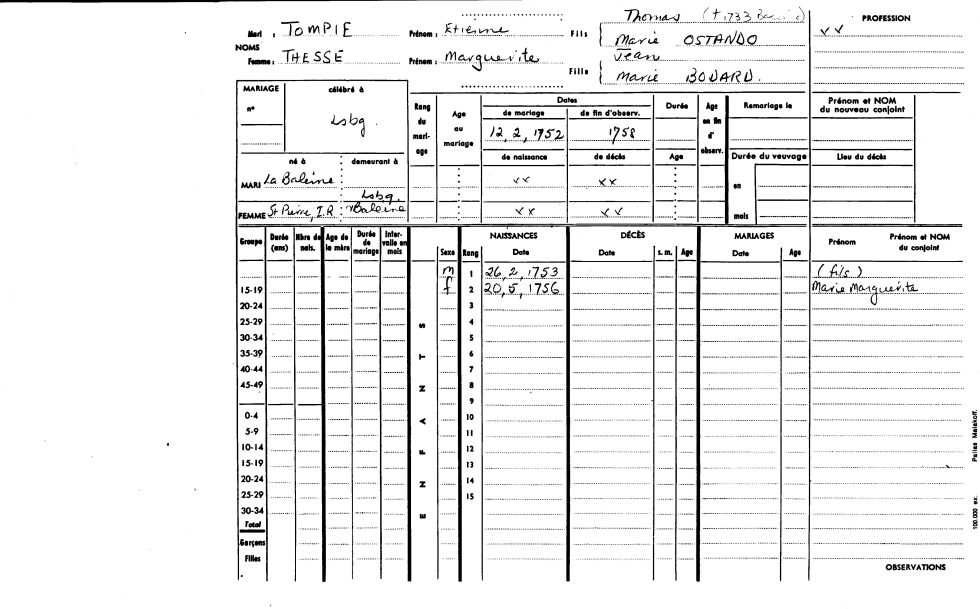 Thomas (+,1733
PROFESSION
Mari : TOMPIE Prénom : Etienne Fils Marie OSTANDO
x x
NOMS
Femme : THESSE Prénom : Marguerite Fille Jean
Marie BODARD.
MARIAGE célébré à
n° Lsbg.
Rang du mari-age
Age au mariage
Dates
de mariage de fin d'observ.
12, 2, 1752 1758
Durée
Age en fin d' observ.
Remariage le
Prénom et NOM du nouveau conjoint
né à demeurant à
de naissance de décès Age
Durée du veuvage
Lieu du décès
MARI La Baleine
x x x x
en
Lsbg.
FEMME St Pierre, I.R Baleine
x x x x
mois
Groupe Durée (ans) Nbre de nais. Age de la mère Durée de mariage Inter-valle en mois
ENFANTS
Sexe Rang
NAISSANCES Date
DÉCÈS Date s. m. Age
MARIAGES Date Age
Prénom Prénom et NOM du conjoint
m 1 26, 2, 1753 (fils)
15-19 f 2 20, 5, 1756 Marie Marguerite
20-24 3
25-29 4
30-34 5
35-39 6
40-44 7
45-49 8
9
0-4 10
5-9 11
10-14 12
15-19 13
20-24 14
25-29 15
30-34
Total
Garçons
Filles
OBSERVATIONS
100.000 ex. Pallas Malakoff.